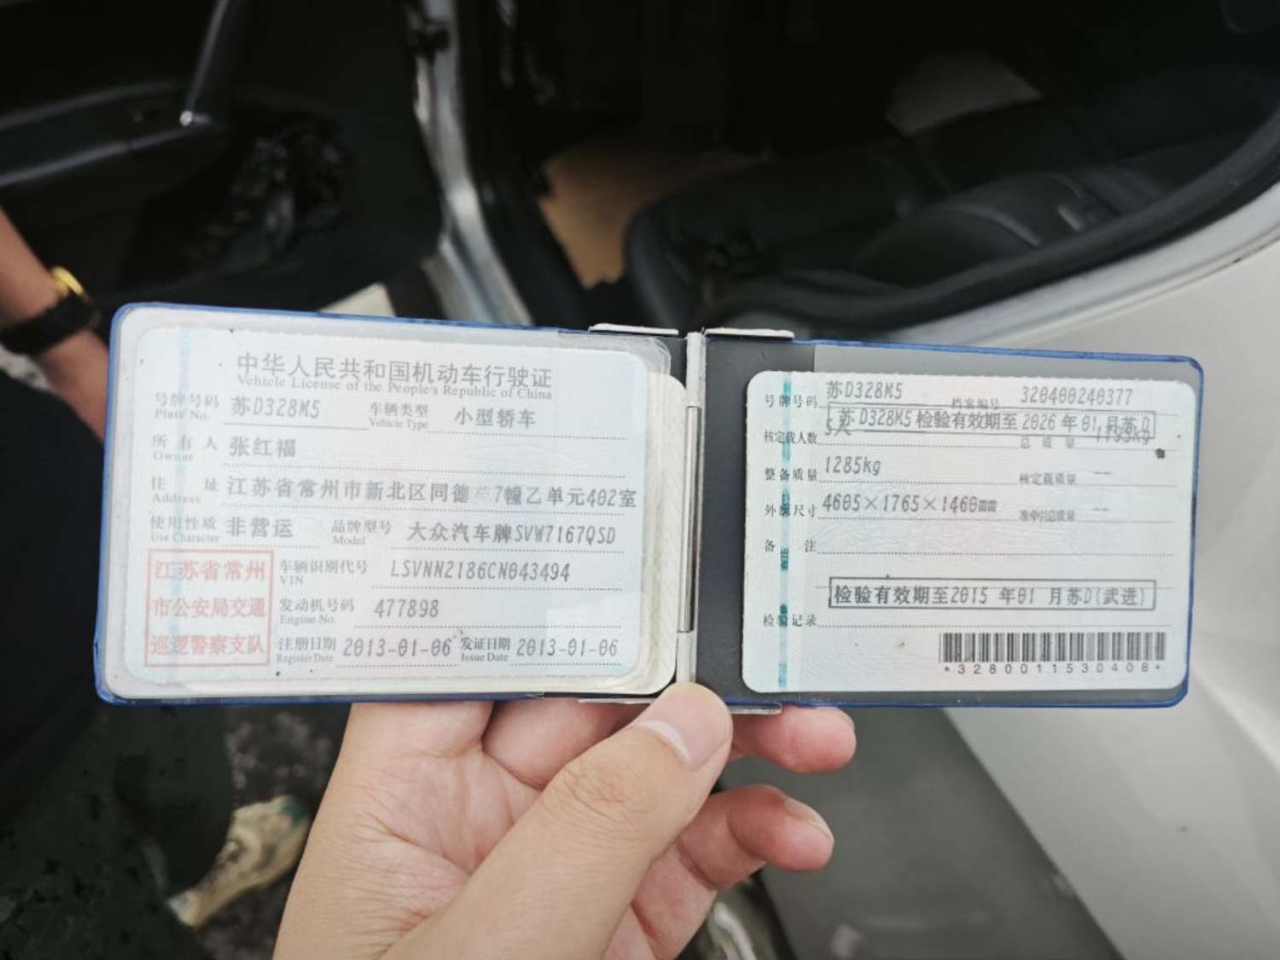 中华人民共和国机动车行驶证
Vehicle License of the People's Republic of China
号牌号码 苏D328M5 车辆类型 小型轿车
Plate No. Vehicle Type
所有人 张红福
Owner
住址 江苏省常州市新北区同德 7幢乙单元402室
Address
使用性质 非营运 品牌型号 大众汽车牌SVW7167QSD
Use Character Model
江苏省常州
市公安局交通
巡逻警察支队
车辆识别代号 LSVNN2186CN043494
VIN
发动机号码 477898
Engine No.
注册日期 2013-01-06 发证日期 2013-01-06
Register Date Issue Date
号牌号码 苏D328M5 档案编号 320400240377
苏D328M5 检验有效期至 2026 年 01 月苏D
核定载人数 5人 总质量
整备质量 1285kg 核定载质量 --
外廓尺寸 4605×1765×1460mm 准牵引总质量 --
备注
检验有效期至2015 年01 月苏D(武进)
检验记录
*3280011530408*